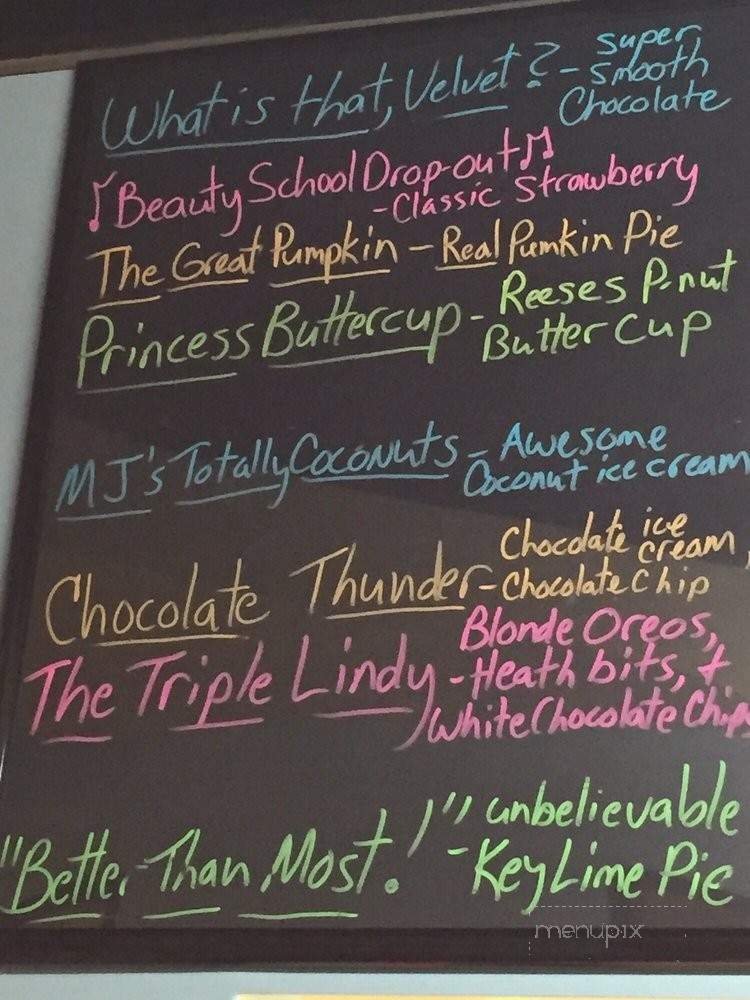 What is that, Velvet? - super
smooth
Chocolate
♪Beauty School Drop-out♫
- Classic Strawberry
The Great Pumpkin - Real Pumkin Pie
Princess Buttercup - Reeses P-nut
Butter Cup
MJ's Totally Coconuts - Awesome
Coconut ice cream
Chocolate Thunder - Chocolate ice
cream,
Chocolate Chip
The Triple Lindy - Blonde Oreos,
Heath bits, +
White Chocolate Chips
"Better Than Most!" unbelievable
- Key Lime Pie
menupix